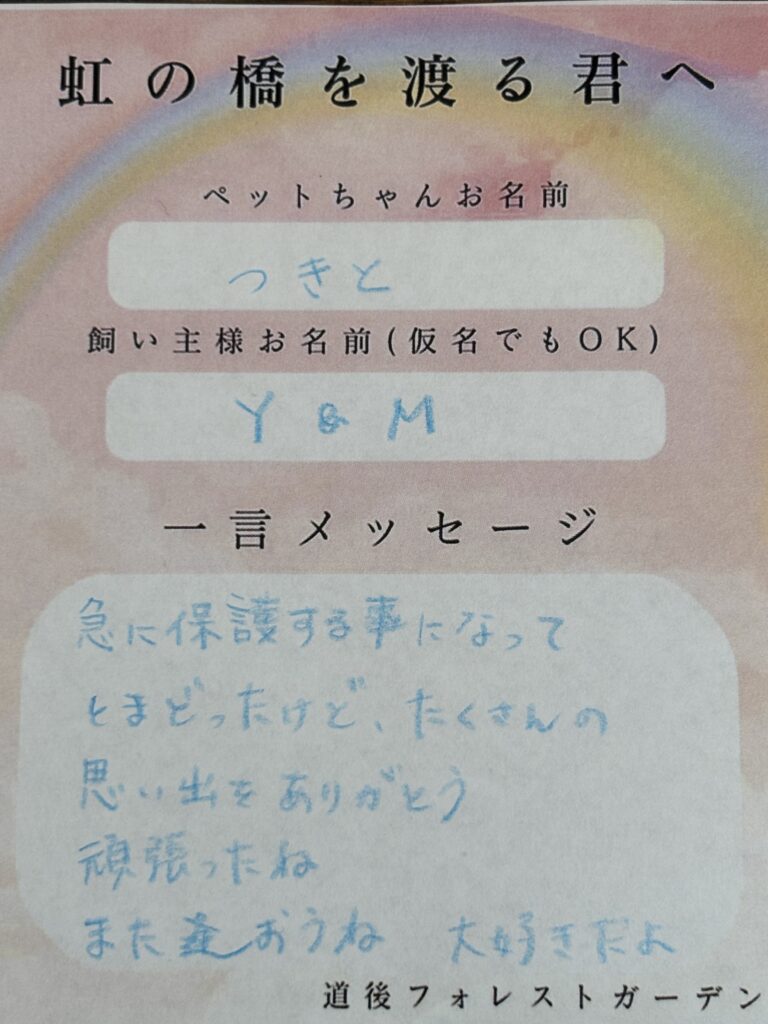 虹の橋を渡る君へ
ペットちゃんお名前
つきと
飼い主様お名前(仮名でもOK)
Y & M
一言メッセージ
急に保護する事になって
とまどったけど、たくさんの
思い出をありがとう
頑張ったね
また逢おうね 大好きだよ
道後フォレストガーデン